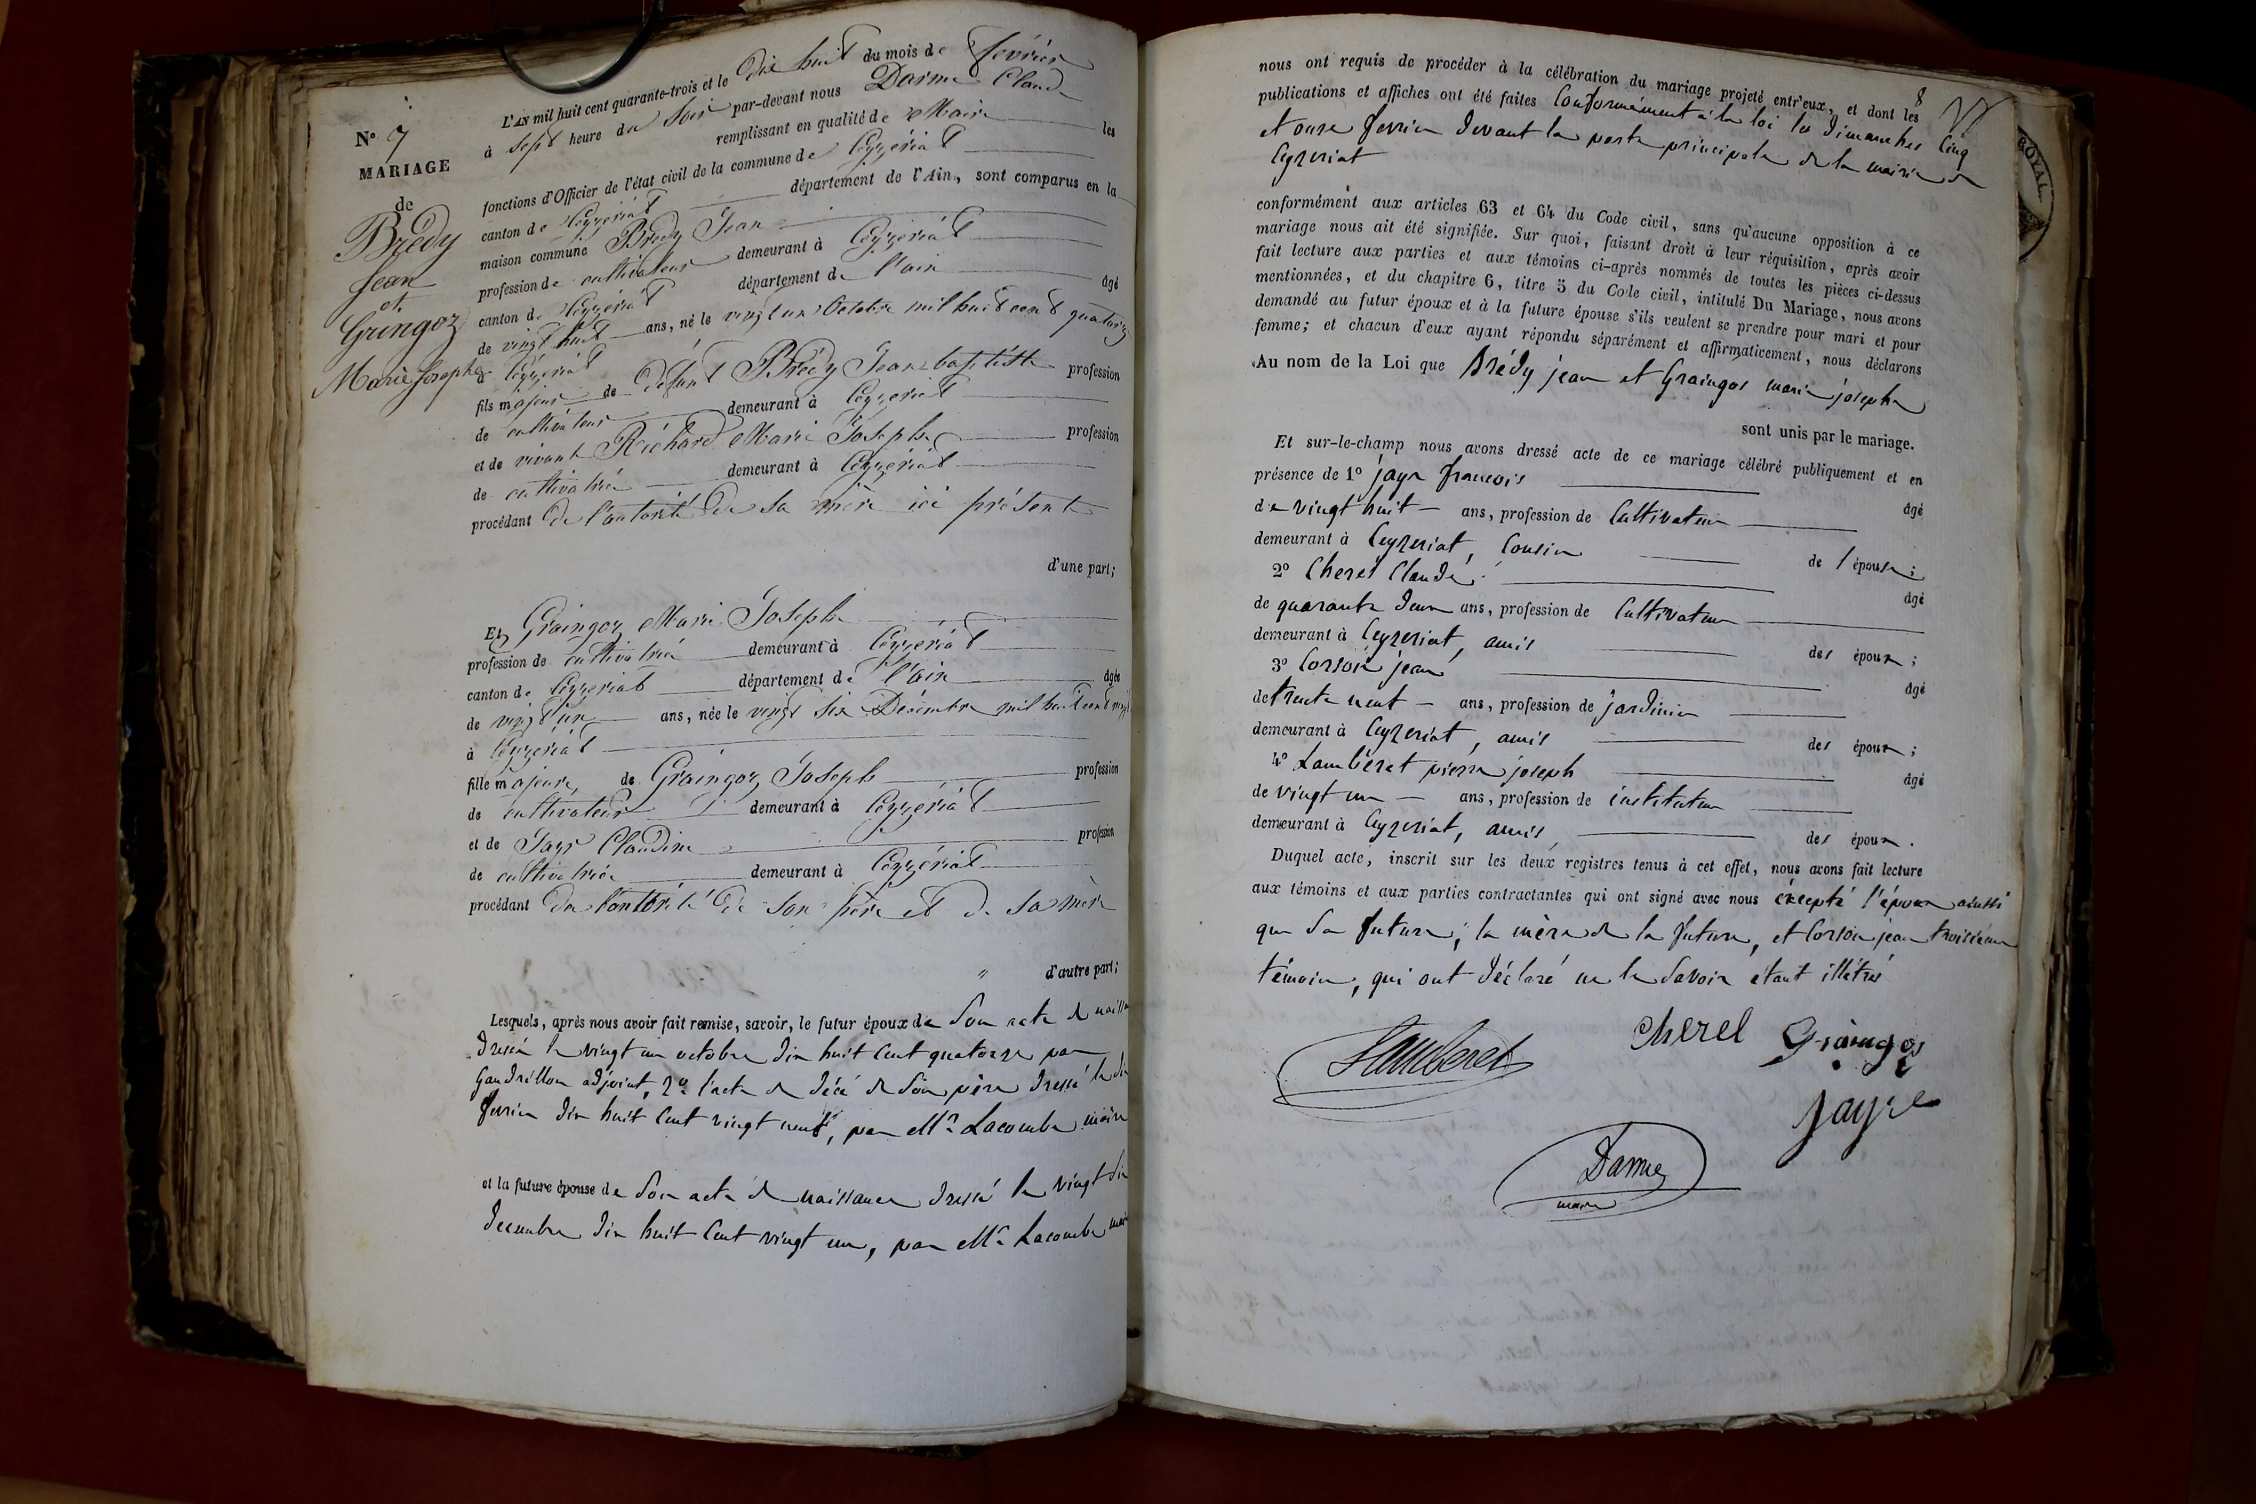 N° 7
MARIAGE
de
Brédy
Jean
et
Graingoz
Marie Josephe
L'AN mil huit cent quarante-trois et le dix huit du mois de février
à sept heure du soir par-devant nous Darme Claude
remplissant en qualité de Maire les
fonctions d'Officier de l'état civil de la commune de Ceyzériat
canton de Ceyzériat département de l'Ain, sont comparus en la
maison commune Brédy Jean
profession de cultivateur demeurant à Ceyzériat
canton de Ceyzériat département de l'ain âgé
de vingt huit ans, né le vingt un Octobre mil huit cent quatorze
à Ceyzériat
fils majeur de défunt Brédy Jean baptiste profession
de cultivateur demeurant à Ceyzériat
et de vivante Réchard Marie Josephe profession
de cultivatrice demeurant à Ceyzériat
procédant de l'autorité de sa mère ici présente
d'une part;
Et Graingoz Marie Josephe
profession de cultivatrice demeurant à Ceyzériat
canton de Ceyzériat département de l'ain âgée
de vingt un ans, née le vingt six Décembre mil huit cent vingt
à Ceyzériat
fille majeure, de Graingoz Joseph profession
de cultivateur demeurant à Ceyzériat
et de Jayr Claudine profession
de cultivatrice demeurant à Ceyzériat
procédant de l'autorité de son père et de sa mère
" d'autre part;
Lesquels, après nous avoir fait remise, savoir, le futur époux de son acte de naissance
dressé le vingt un octobre dix huit cent quatorze par
Gaudrillon adjoint, 2° l'acte de décé de son père dressé le dix
fevrier dix huit cent vingt neuf, par Mr Lacombe maire
et la future épouse de son acte de naissance dressé le vingt six
decembre dix huit cent vingt un, par Mr Lacombe maire
8
nous ont requis de procéder à la célébration du mariage projeté entr'eux, et dont les
publications et affiches ont été faites Conformément à la loi les dimanches Cinq
et onze fevrier devant la porte principale de la mairie de
Ceyzeriat
conformément aux articles 63 et 64 du Code civil, sans qu'aucune opposition à ce
mariage nous ait été signifiée. Sur quoi, faisant droit à leur réquisition, après avoir
fait lecture aux parties et aux témoins ci-après nommés de toutes les pièces ci-dessus
mentionnées, et du chapitre 6, titre 5 du Code civil, intitulé Du Mariage, nous avons
demandé au futur époux et à la future épouse s'ils veulent se prendre pour mari et pour
femme; et chacun d'eux ayant répondu séparément et affirmativement, nous déclarons
Au nom de la Loi que Brédy jean et Graingos marie josephe
sont unis par le mariage.
Et sur-le-champ nous avons dressé acte de ce mariage célébré publiquement et en
présence de 1° jayr francois âgé
de vingt huit ans, profession de Cultivateur
demeurant à Ceyzeriat, Cousin de l'épouse;
2° Cherel Claude âgé
de quarante deux ans, profession de Cultivateur
demeurant à Ceyzeriat, amis des époux;
3° Corsoin jean âgé
de trente neuf ans, profession de jardinier
demeurant à Ceyzeriat, amis des époux;
4° Lamberet pierre joseph âgé
de vingt un ans, profession de instituteur
demeurant à Ceyzeriat, amis des époux.
Duquel acte, inscrit sur les deux registres tenus à cet effet, nous avons fait lecture
aux témoins et aux parties contractantes qui ont signé avec nous excepté l'époux aussi
que sa future, la mère de la future, et Corsoin jean troisième
témoin, qui ont déclaré ne le savoir étant illétrés
Lamberet
Cherel
Graingos
Jayre
Darme
maire
ROYAL